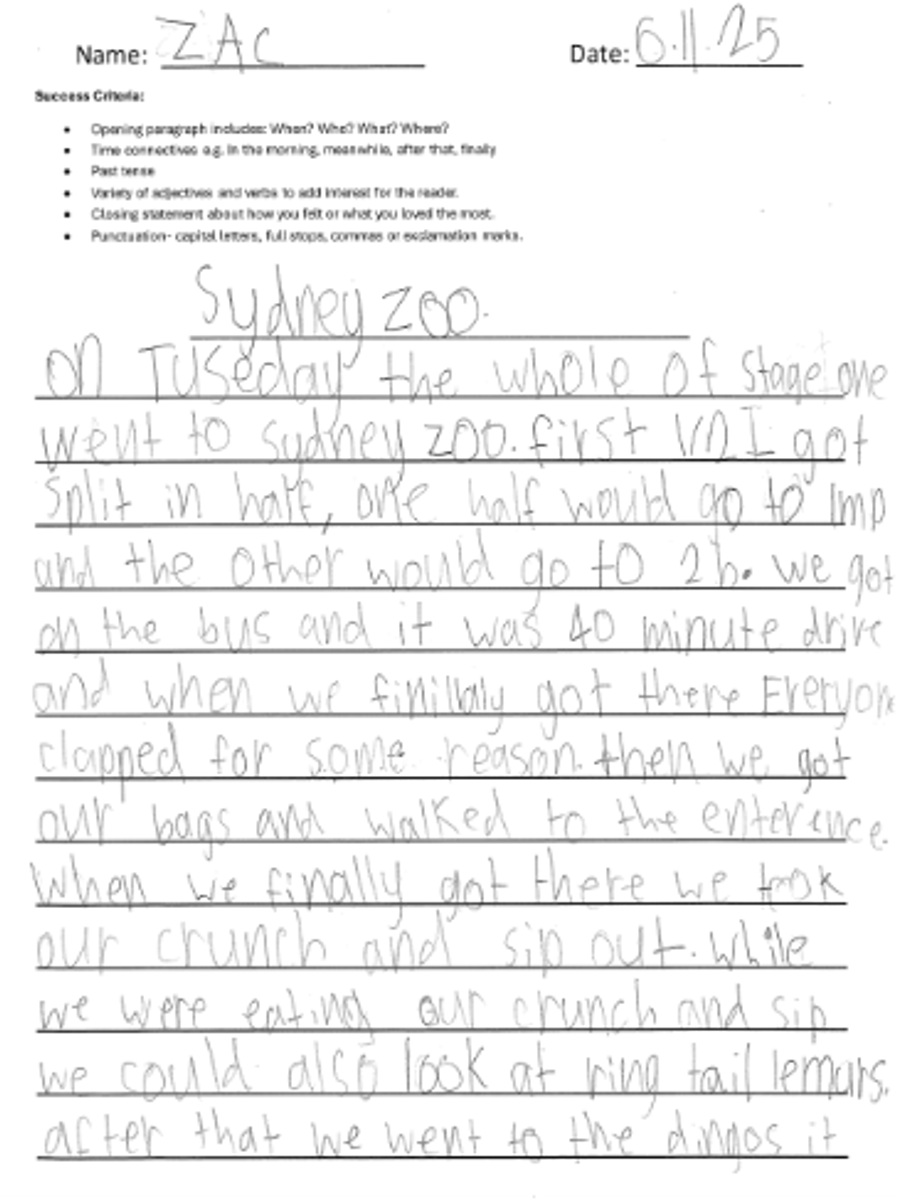 Name: ZAC Date: 6.11.25
Success Criteria:
• Opening paragraph includes: When? Who? What? Where?
• Time connectives e.g. In the morning, meanwhile, after that, finally
• Past tense
• Variety of adjectives and verbs to add interest for the reader.
• Closing statement about how you felt or what you loved the most.
• Punctuation- capital letters, full stops, commas or exclamation marks.
Sydney zoo.
on Tuseday the whole of stage one
went to sydney zoo. first I got
split in half, one half would go to 1mp
and the other would go to 2b. we got
on the bus and it was 40 minute drive
and when we got there Everyone
clapped for some reason. then we got
our bags and walked to the enterence.
When we finally got there we took
our crunch and sip out. while
we were eating our crunch and sip
we could also look at ring tail lemurs.
after that we went to the dingos it